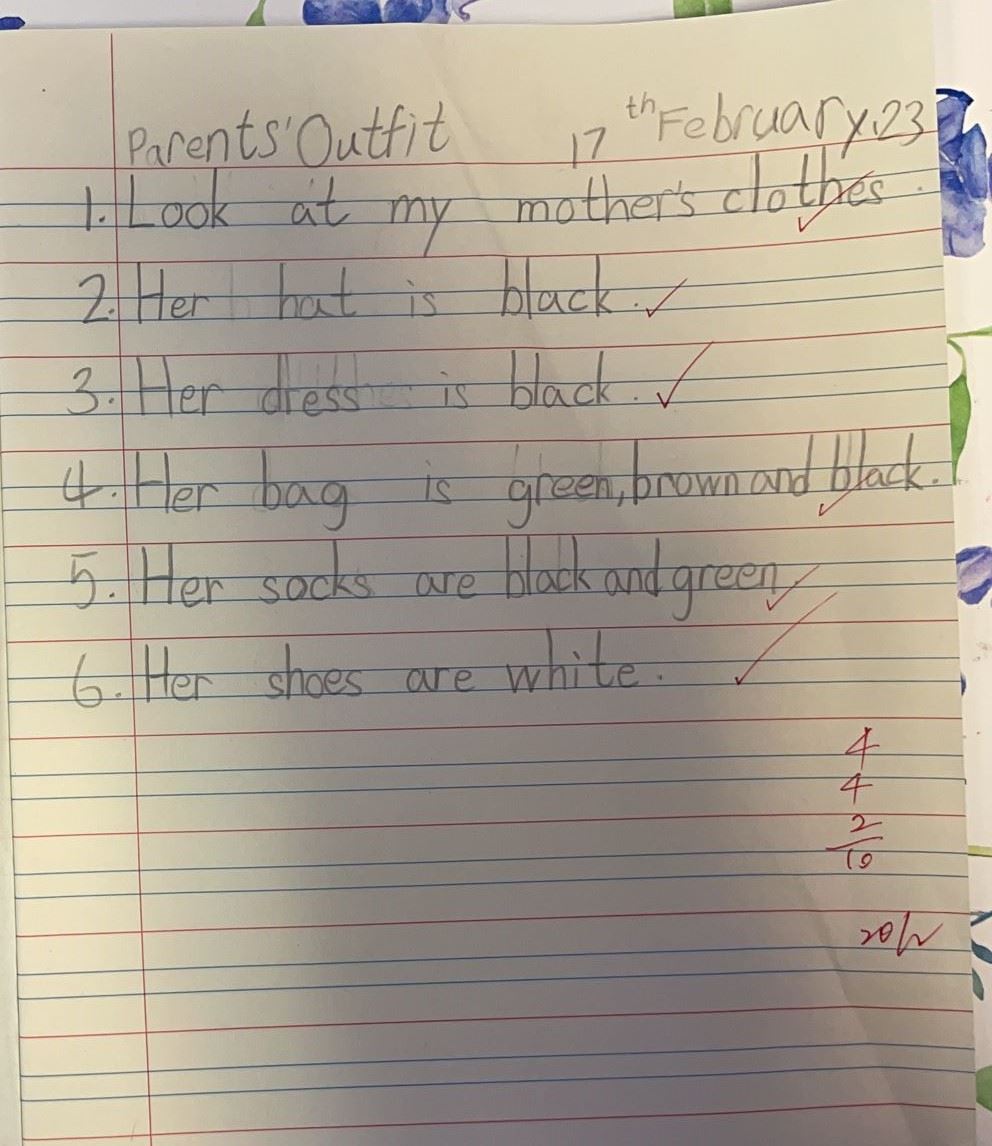 Parents' Outfit 17th February, 23
1. Look at my mother's clothes.
2. Her hat is black.
3. Her dress is black.
4. Her bag is green, brown and black.
5. Her socks are black and green
6. Her shoes are white.
4
4
2
10
20/2